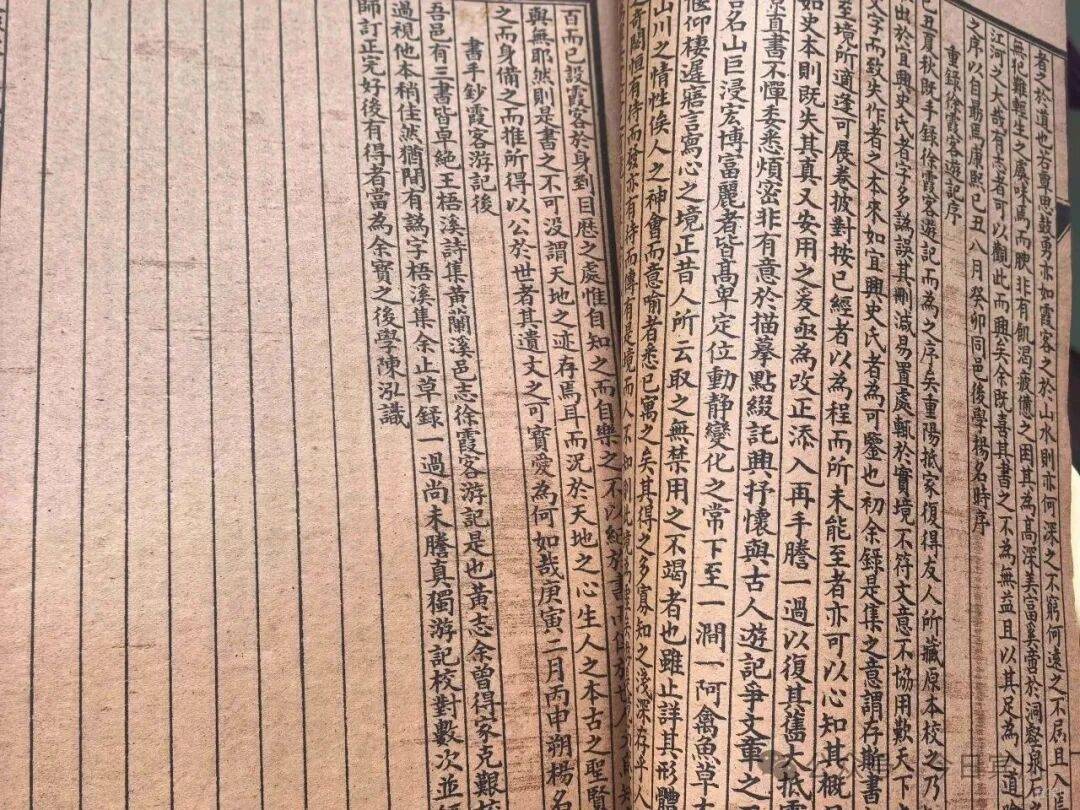 者之於道也若覃思鼓勇亦如霞客之於山水則亦何深之不窮何遠之不屆且入焉
無他難輕生之虞味焉而腴非有飢渴疲憊之困其為高深美富奚啻於洞壑泉石
江河之大哉有志者可以觀此而興矣余既喜其書之不為無益且以其足為入道
之序以自勗焉康熙己丑八月癸卯同邑後學楊名時序
重錄徐霞客遊記序
己丑夏秋既手錄徐霞客遊記而為之序矣重陽抵家復得友人所藏原本校之乃
出於宜興史氏者字多譌誤其刪減易置處輒於實境不符文意不協用歎天下
文字而致失作者之本來如宜興史氏者為可鑒也初余錄是集之意謂存斯書
至境所適逢可展卷披對按已經者以為程而所未能至者亦可以心知其概
如史本則既失其真又安用之爰亟為改正添入再手謄一過以復其舊大抵霞
景直書不憚委悉煩密非有意於描摹點綴託興抒懷與古人遊記爭文章之
名山巨浸宏博富麗者皆高卑定位動靜變化之常下至一澗一阿禽魚草
偃仰棲遲寤言寫心之境正昔人所云取之無禁用之不竭者也雖止詳其形體
山川之情性俟人之神會而意喻者悉已寓之矣其得之多寡知之淺深存乎人
之奇闢恒有待而發亦有待而傳有是境而人不知
百而已設霞客於身到目歷之處惟自知之而自樂之不以紀於書
與無耶然則是書之不可沒謂天地之迹存焉耳而況於天地之心生人之本古之聖賢
之而身備之而推所得以公於世者其遺文之可寶愛為何如哉庚寅二月丙申朔楊名
書手鈔霞客游記後
吾邑有三書皆卓絕王梧溪詩集黃蘭溪邑志徐霞客游記是也黃志余曾得家克艱校
過視他本稍佳然猶間有譌字梧溪集余止草錄一過尚未謄真獨游記校對數次並
師訂正完好後有得者當為余寶之後學陳泓識